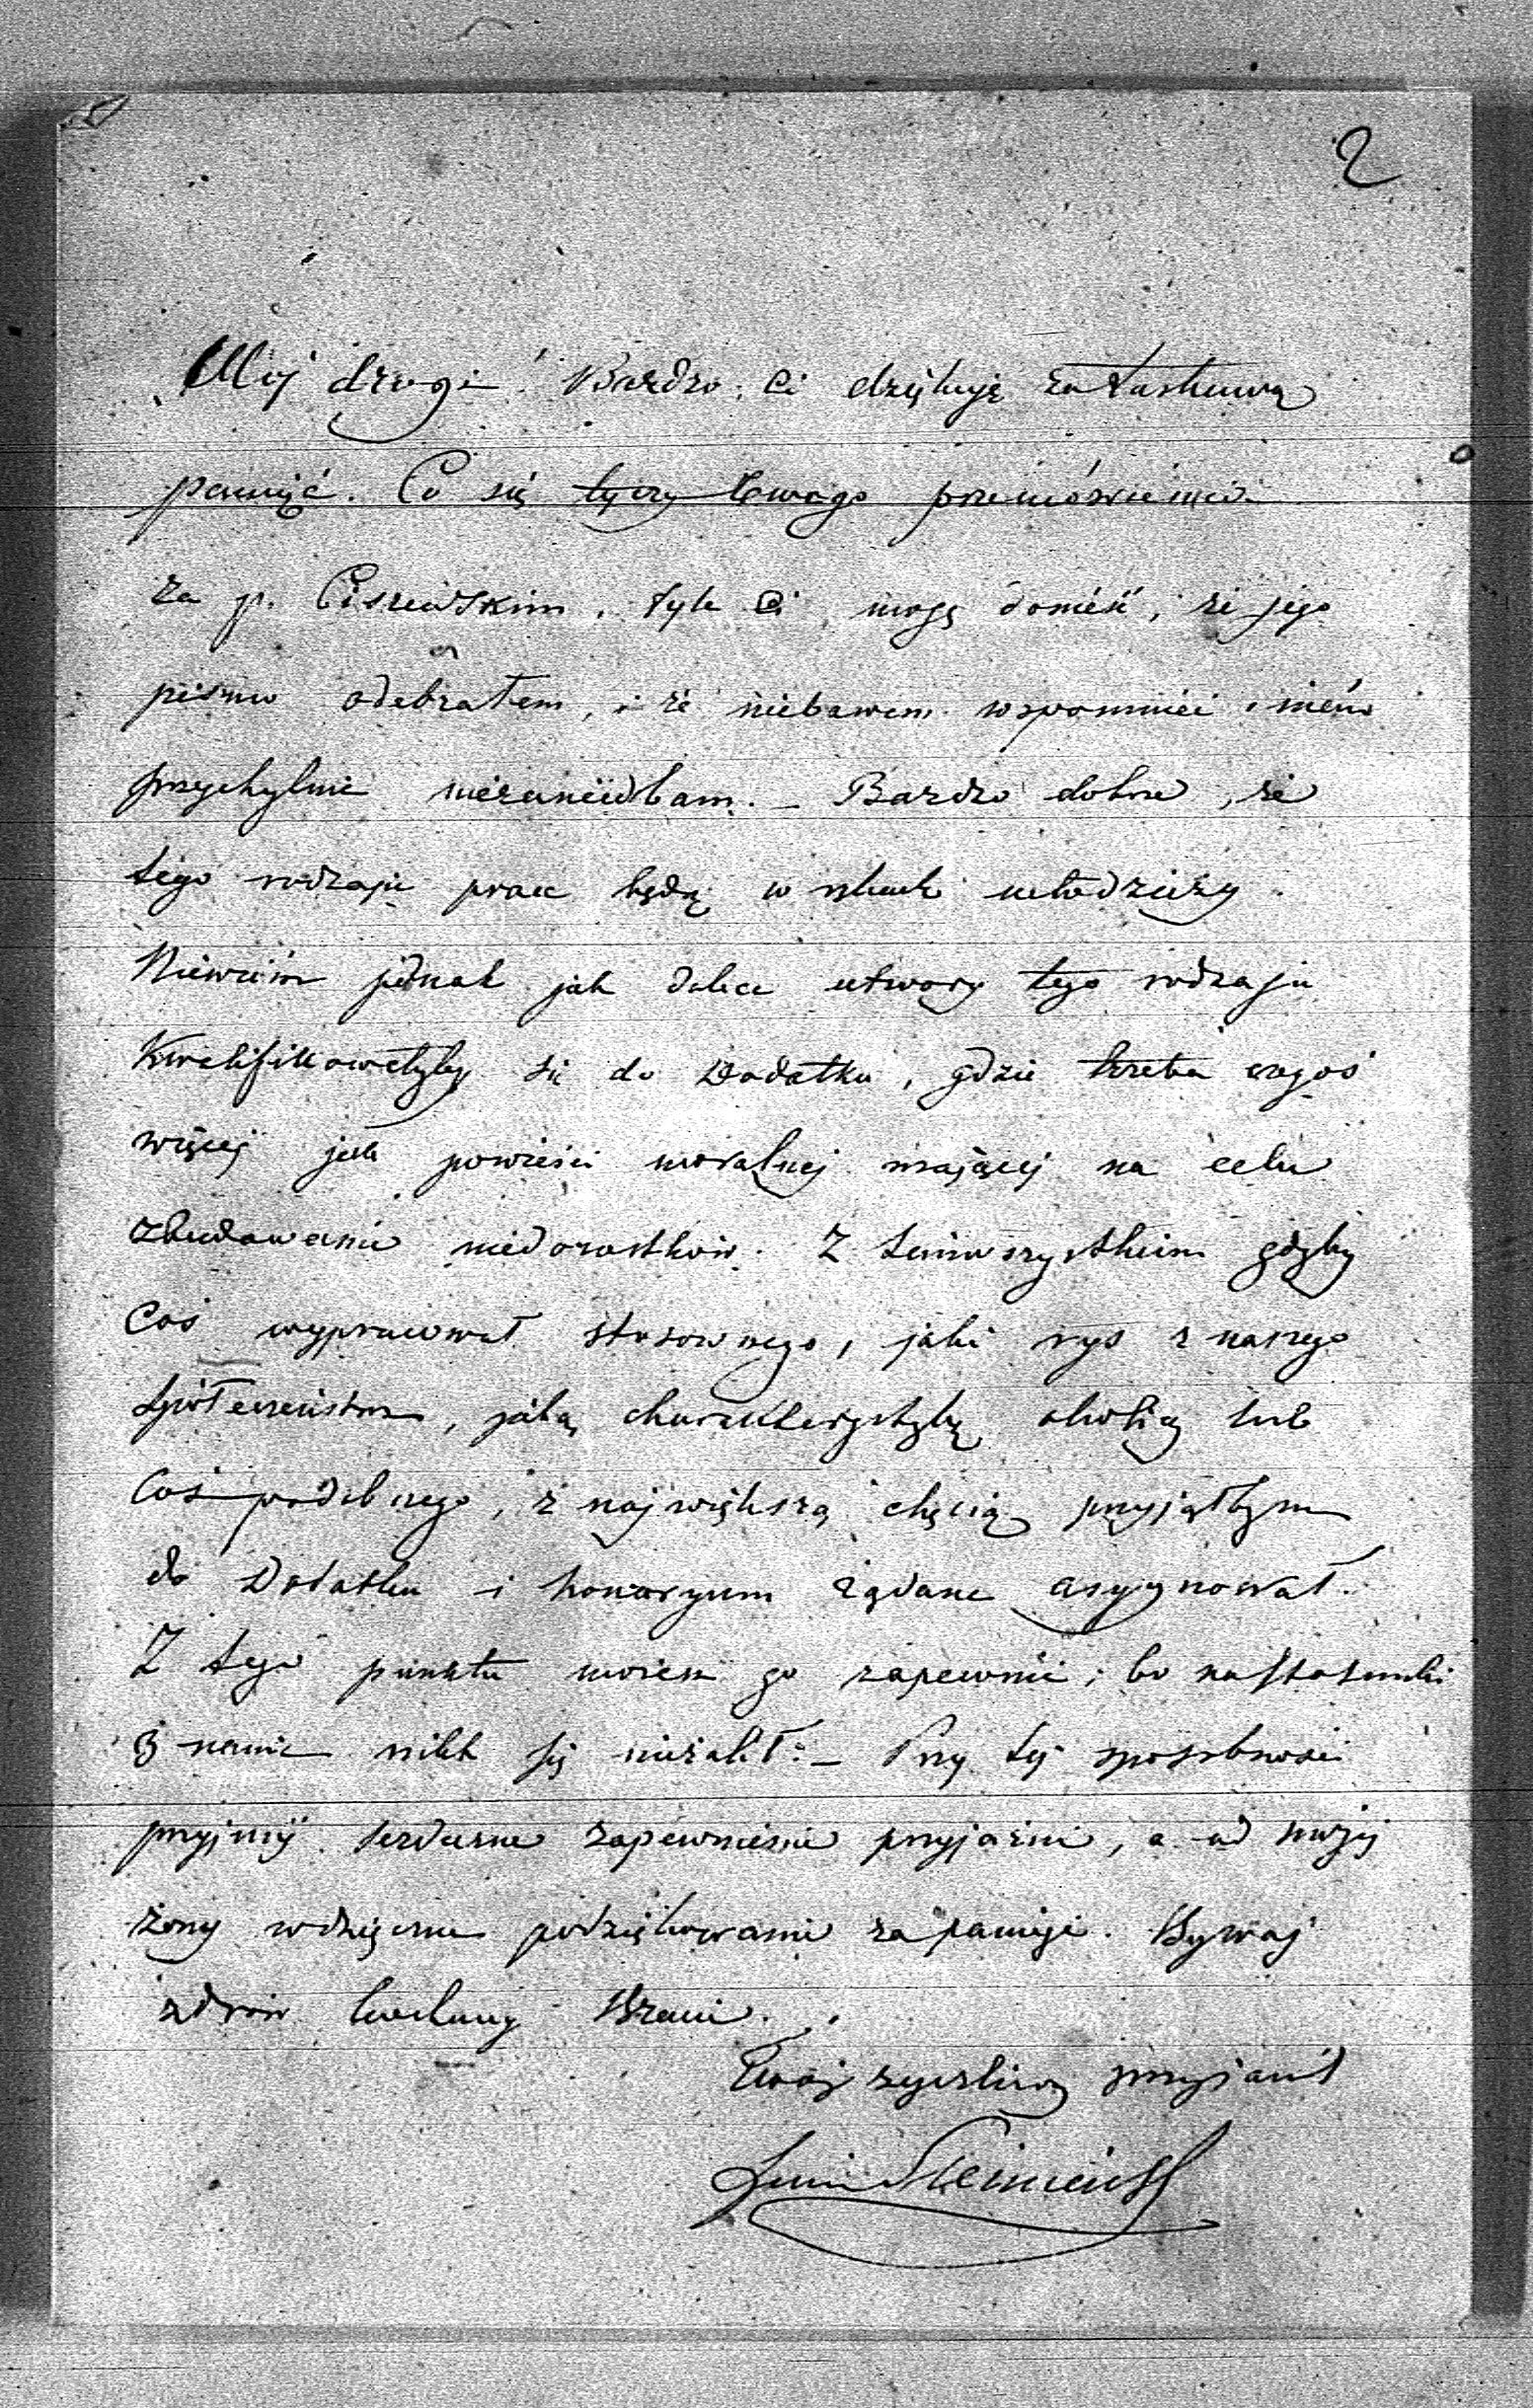 2
Mój drogi! Bardzo Ci dziękuję za łaskawą
pamięć. Co się tyczy twego przemówienia
za p. Ciszewskim, tyle Ci mogę donieść, że jego
pismo odebrałem, i że niebawem wspomnieć o niem
przychylnie niezaniedbam. – Bardzo dobrze, że
tego rodzaju prace będą w ręku młodzieży.
Niewiem jednak jak dalece utwory tego rodzaju
kwalifikowałyby się do Dodatku, gdzie trzeba czegoś
więcej jak powieści moralnej mającej na celu
zbudowanie niedorostków. Z temwszystkiem gdyby
coś wypracował stosownego, jaki rys z naszego
społeczeństwa, jaką charakterystykę okolicy lub
coś podobnego, z największą chęcią przyjąłbym
do Dodatku i honoraryum żądane asygnował.
Z tego punktu możesz go zapewnić; bo na stosunki
z nami nikt się nieżalił. – Przy tej sposobności
przyjmij serdeczne zapewnienie przyjaźni, a od mojej
żony wdzięczne podziękowanie za pamięć. Bywaj
zdrów kochany Bracie.
Twój życzliwy przyjaciel
Lucian Siemieński